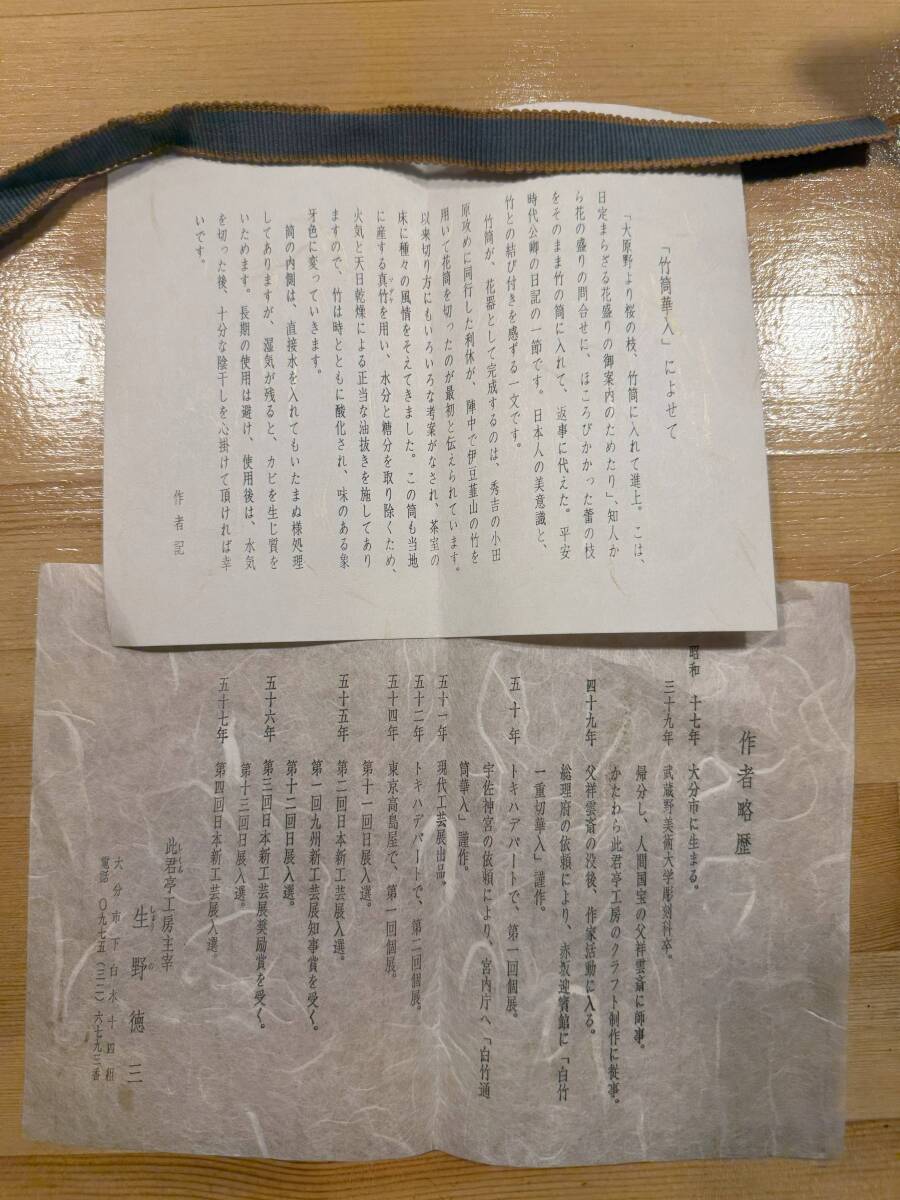 「竹筒華入」によせて
「大原野より桜の枝、竹筒に入れて進上。こは、
日定まらざる花盛りの御案内のためたり」、知人か
ら花の盛りの問合せに、ほころびかかった蕾の枝
をそのまま竹の筒に入れて、返事に代えた。平安
時代公卿の日記の一節です。日本人の美意識と、
竹との結び付きを感ずる一文です。
竹筒が、花器として完成するのは、秀吉の小田
原攻めに同行した利休が、陣中で伊豆韮山の竹を
用いて花筒を切ったのが最初と伝えられています。
以来切り方にもいろいろな考案がなされ、茶室の
床に種々の風情をそえてきました。この筒も当地
に産する真竹を用い、水分と糖分を取り除くため、
火気と天日乾燥による正当な油抜きを施してあり
ますので、竹は時とともに酸化され、味のある象
牙色に変っていきます。
筒の内側は、直接水を入れてもいたまぬ様処理
してありますが、湿気が残ると、カビを生じ質を
いためます。長期の使用は避け、使用後は、水気
を切った後、十分な陰干しを心掛けて頂ければ幸
いです。
作者記
作者略歴
昭和 十七年 大分市に生まる。
三十九年 武蔵野美術大学彫刻科卒。
帰分し、人間国宝の父祥雲斎に師事。
かたわら此君亭工房のクラフト制作に従事。
四十九年 父祥雲斎の没後、作家活動に入る。
総理府の依頼により、赤坂迎賓館に「白竹
一重切華入」謹作。
五十年 トキハデパートで、第一回個展。
宇佐神宮の依頼により、宮内庁へ「白竹通
筒華入」謹作。
五十一年 現代工芸展出品。
五十二年 トキハデパートで、第二回個展。
五十四年 東京高島屋で、第一回個展。
第十一回日展入選。
五十五年 第二回日本新工芸展入選。
第一回九州新工芸展知事賞を受く。
第十二回日展入選。
五十六年 第三回日本新工芸展奨励賞を受く。
第十三回日展入選。
五十七年 第四回日本新工芸展入選。
此君亭工房主宰
生野徳三
大分市下白木十四組
電話 〇九七五(三二)六七九三番